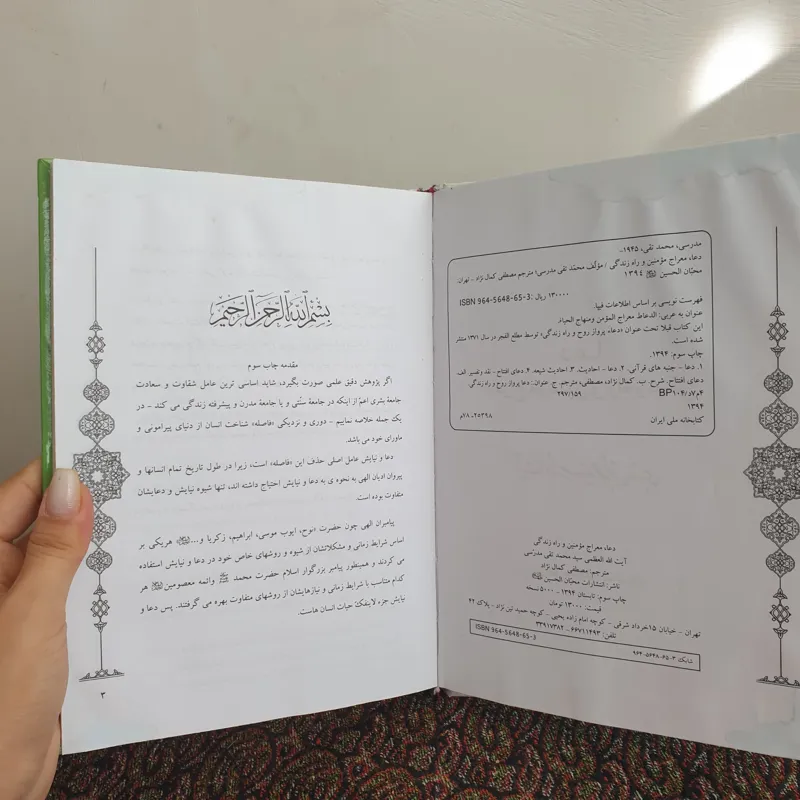 مدرسی، محمد تقی، ۱۹۴۵ـ
دعاء معراج مؤمنین و راه زندگی / مؤلّف محمّد تقی مدرسی؛ مترجم مصطفی کمال نژاد ـ تهران:
محبّان الحسین ۱۳۹۴
۱۳۰۰۰۰ ریال: ISBN 964-5648-65-3
فهرست نویسی بر اساس اطلاعات فیپا.
عنوان به عربی: الدعاء معراج المؤمن ومنهاج الحیاة.
این کتاب قبلا تحت عنوان «دعاء پرواز روح و راه زندگی» توسط مطلع الفجر در سال ۱۳۷۱ منتشر
شده است.
چاپ سوم: ۱۳۹۴.
۱. دعا - جنبه های قرآنی. ۲. دعا - احادیث. ۳. احادیث شیعه. ۴. دعای افتتاح - نقد وتفسیر. الف
دعای افتتاح. شرح. ب. کمال نژاد، مصطفی، مترجم. ج. عنوان: دعا پرواز روح و راه زندگی.
۲۹۷/۱۵۹
BP۱۰۴/د۷م۴
۱۳۹۴
کتابخانه ملی ایران
۲۵۳۹۸-۷۸م
دعاء معراج مؤمنین و راه زندگی
آیت الله العظمی سید محمد تقی مدرّسی
مترجم: مصطفی کمال نژاد
ناشر: انتشارات محبّان الحسین
چاپ سوم: تابستان ۱۳۹۴ - ۵۰۰۰ نسخه
قیمت: ۱۳۰۰۰ تومان
تهران - خیابان ۱۵خرداد شرقی - کوچه امام زاده یحیی - کوچه حمید تین نژاد - پلاک ۴۲
تلفن: ۶۶۷۱۱۴۹۳ - ۳۳۹۱۷۳۸۲
شابک ۳-۶۵-۵۶۴۸-۹۶۴ ISBN 964-5648-65-3
بِسْمِ ٱللَّهِ ٱلرَّحْمَٰنِ ٱلرَّحِيمِ
مقدمه چاپ سوم
اگر پژوهش دقیق علمی صورت بگیرد، شاید اساسی ترین عامل شقاوت و سعادت
جامعهٔ بشری اعّم از اینکه در جامعهٔ سنّتی و یا جامعهٔ مدرن و پیشرفته زندگی می کند - در
یک جمله خلاصه نماییم - دوری و نزدیکی «فاصله» شناخت انسان از دنیای پیرامونی و
ماورای خود می باشد.
دعا و نیایش عامل اصلی حذف این «فاصله» است، زیرا در طول تاریخ تمام انسانها و
پیروان ادیان الهی به نحوه ی به دعا و نیایش احتیاج داشته اند، تنها شیوه نیایش و دعایشان
متفاوت بوده است.
پیامبران الهی چون حضرت «نوح، ایوب موسی، ابراهیم، زکریا و...» هریکی بر
اساس شرایط زمانی و مشکلاتشان از شیوه و روشهای خاص خود در دعا و نیایش استفاده
می کردند و همینطور پیامبر بزرگوار اسلام حضرت محمد وائمه معصومین هر
کدام متناسب با شرایط زمانی و نیازهایشان از روشهای متفاوت بهره می گرفتند. پس دعا و
نیایش جزء لاینفکّ حیات انسان هاست.
۳